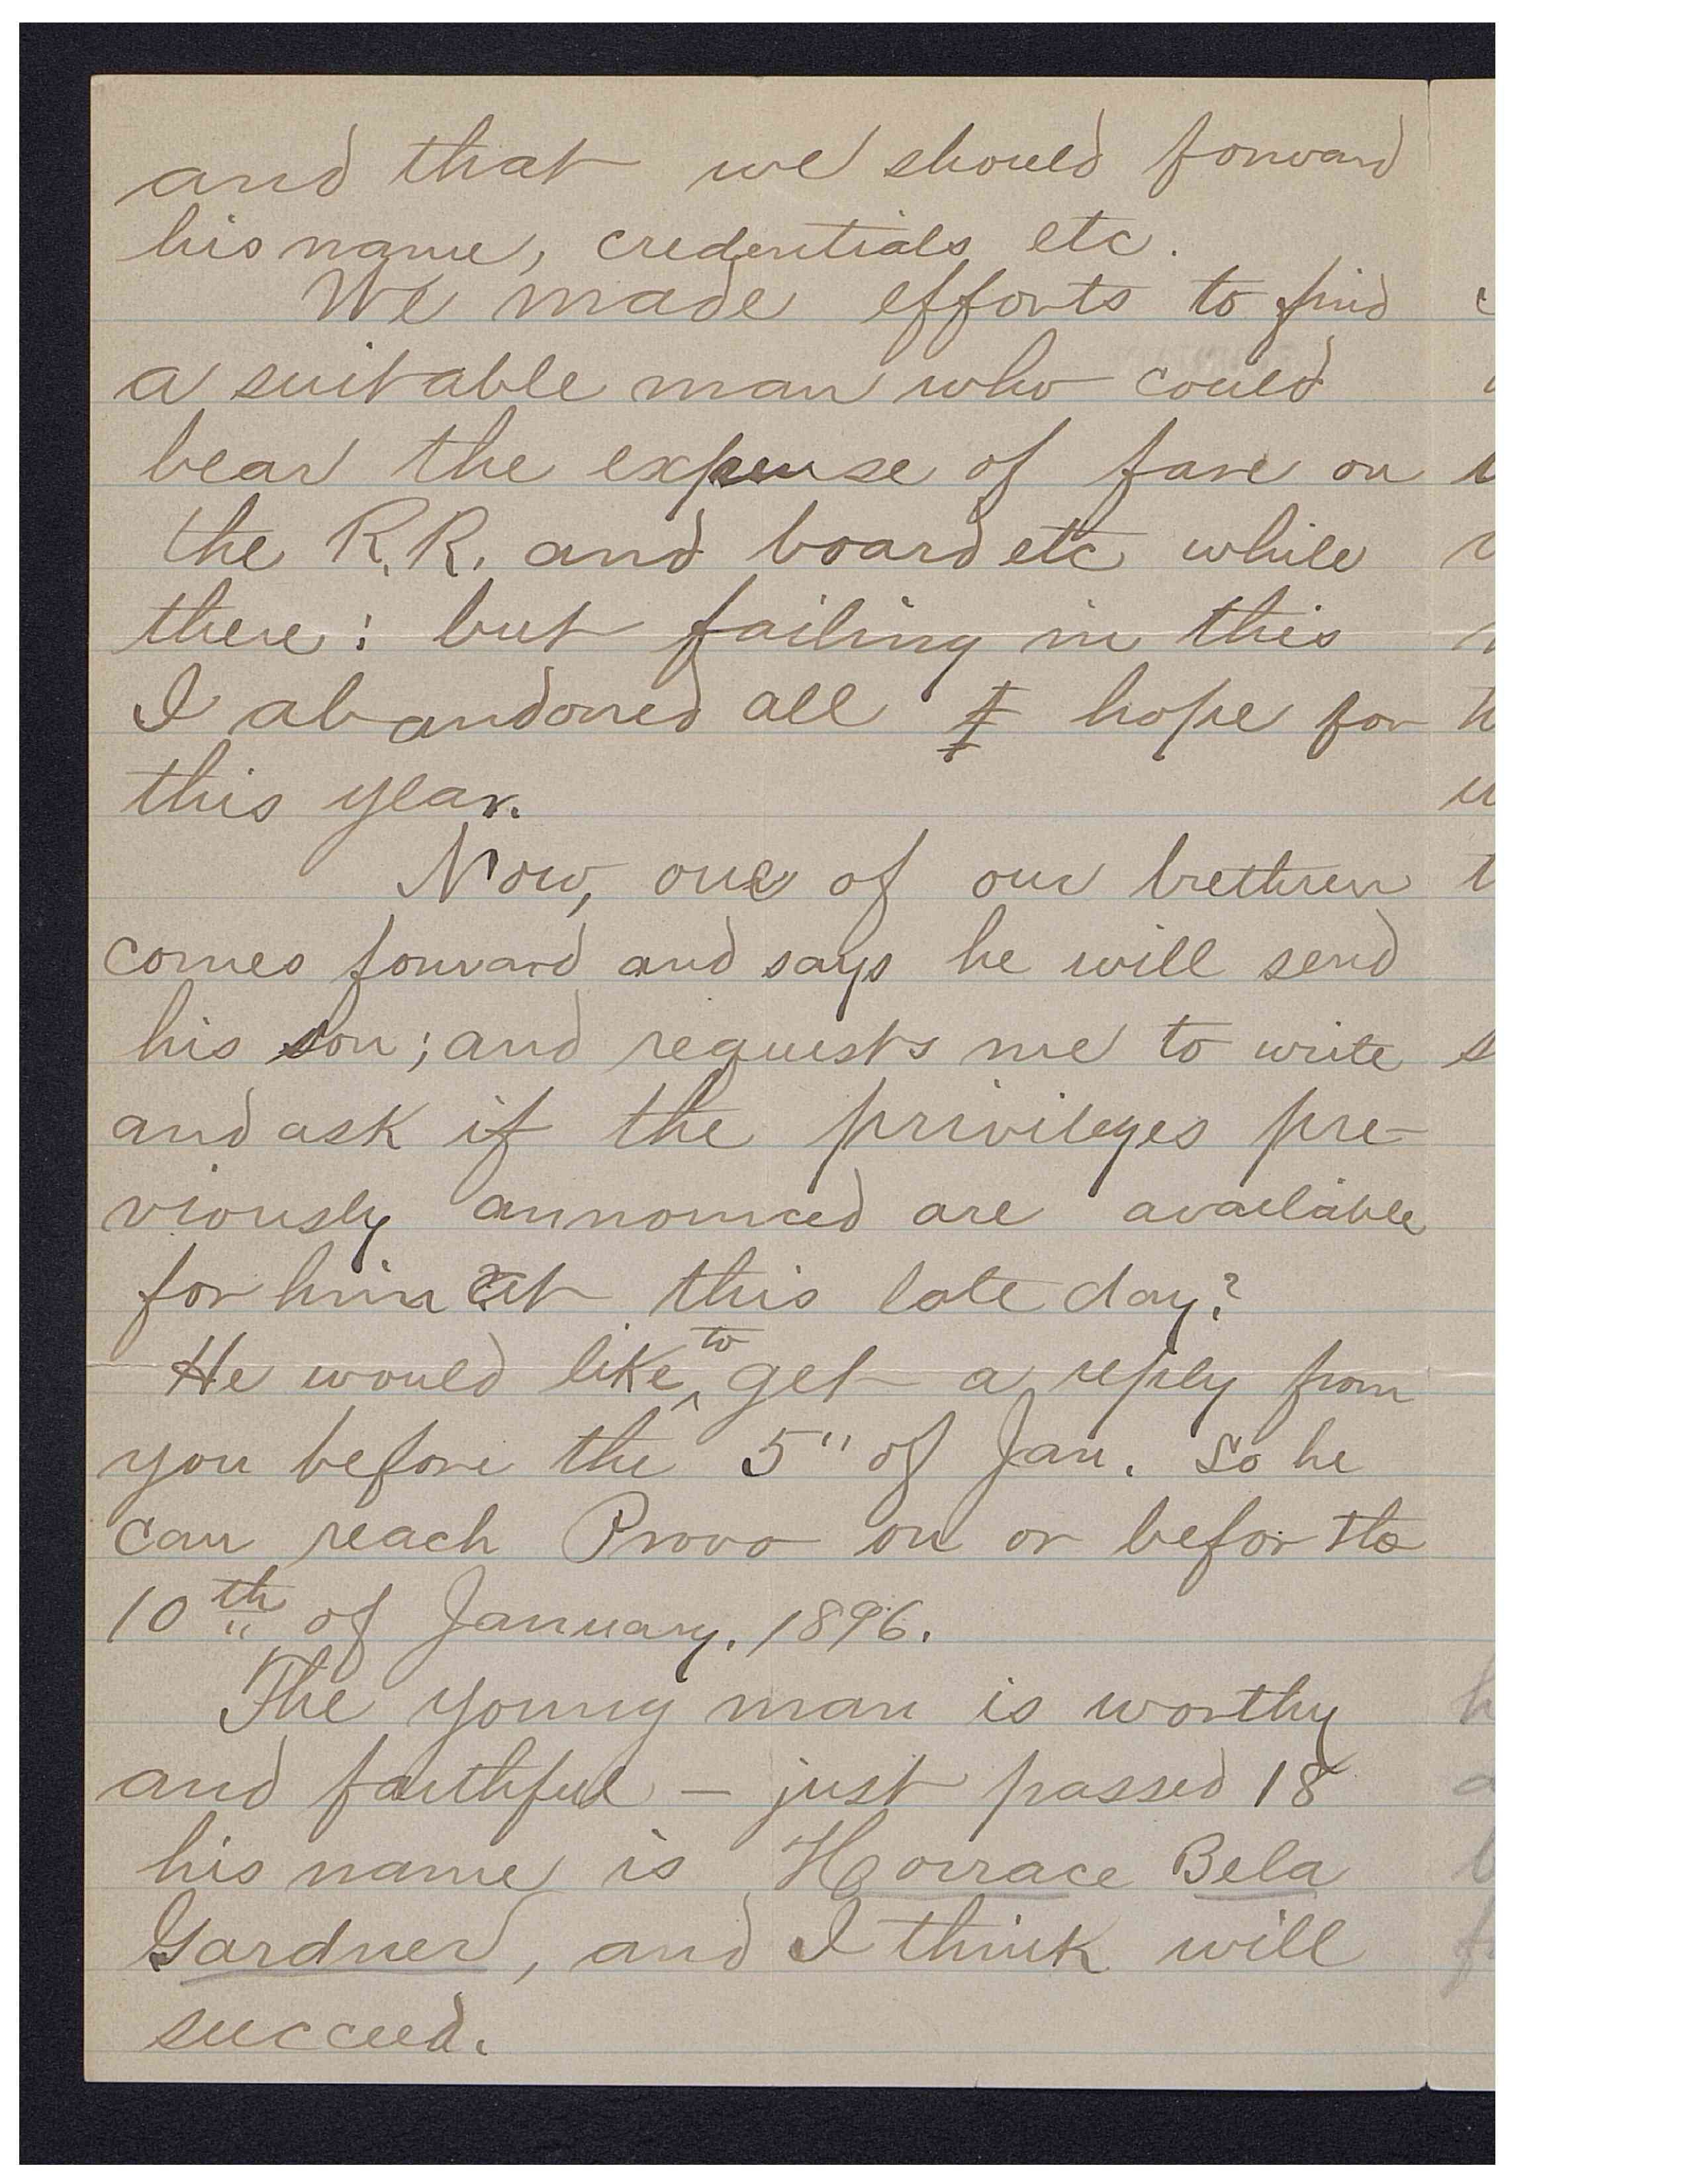 and that we should forward
his name, credentials etc.
We made efforts to find
a suitable man who could
bear the expense of fare on
the R.R. and board etc while
there: but failing in this
I abandoned all hope for
this year.
Now, one of our brethren
comes forward and says he will send
his son; and requests me to write
and ask if the privileges pre-
viously announced are available
for him at this late day?
He would like to get a reply from
you before the 5" of Jan. So he
can reach Provo on or befor the
10th of January. 1896.
The young man is worthy
and faithful — just passed 18
his name is Horrace Bela
Gardner, and I think will
succeed.